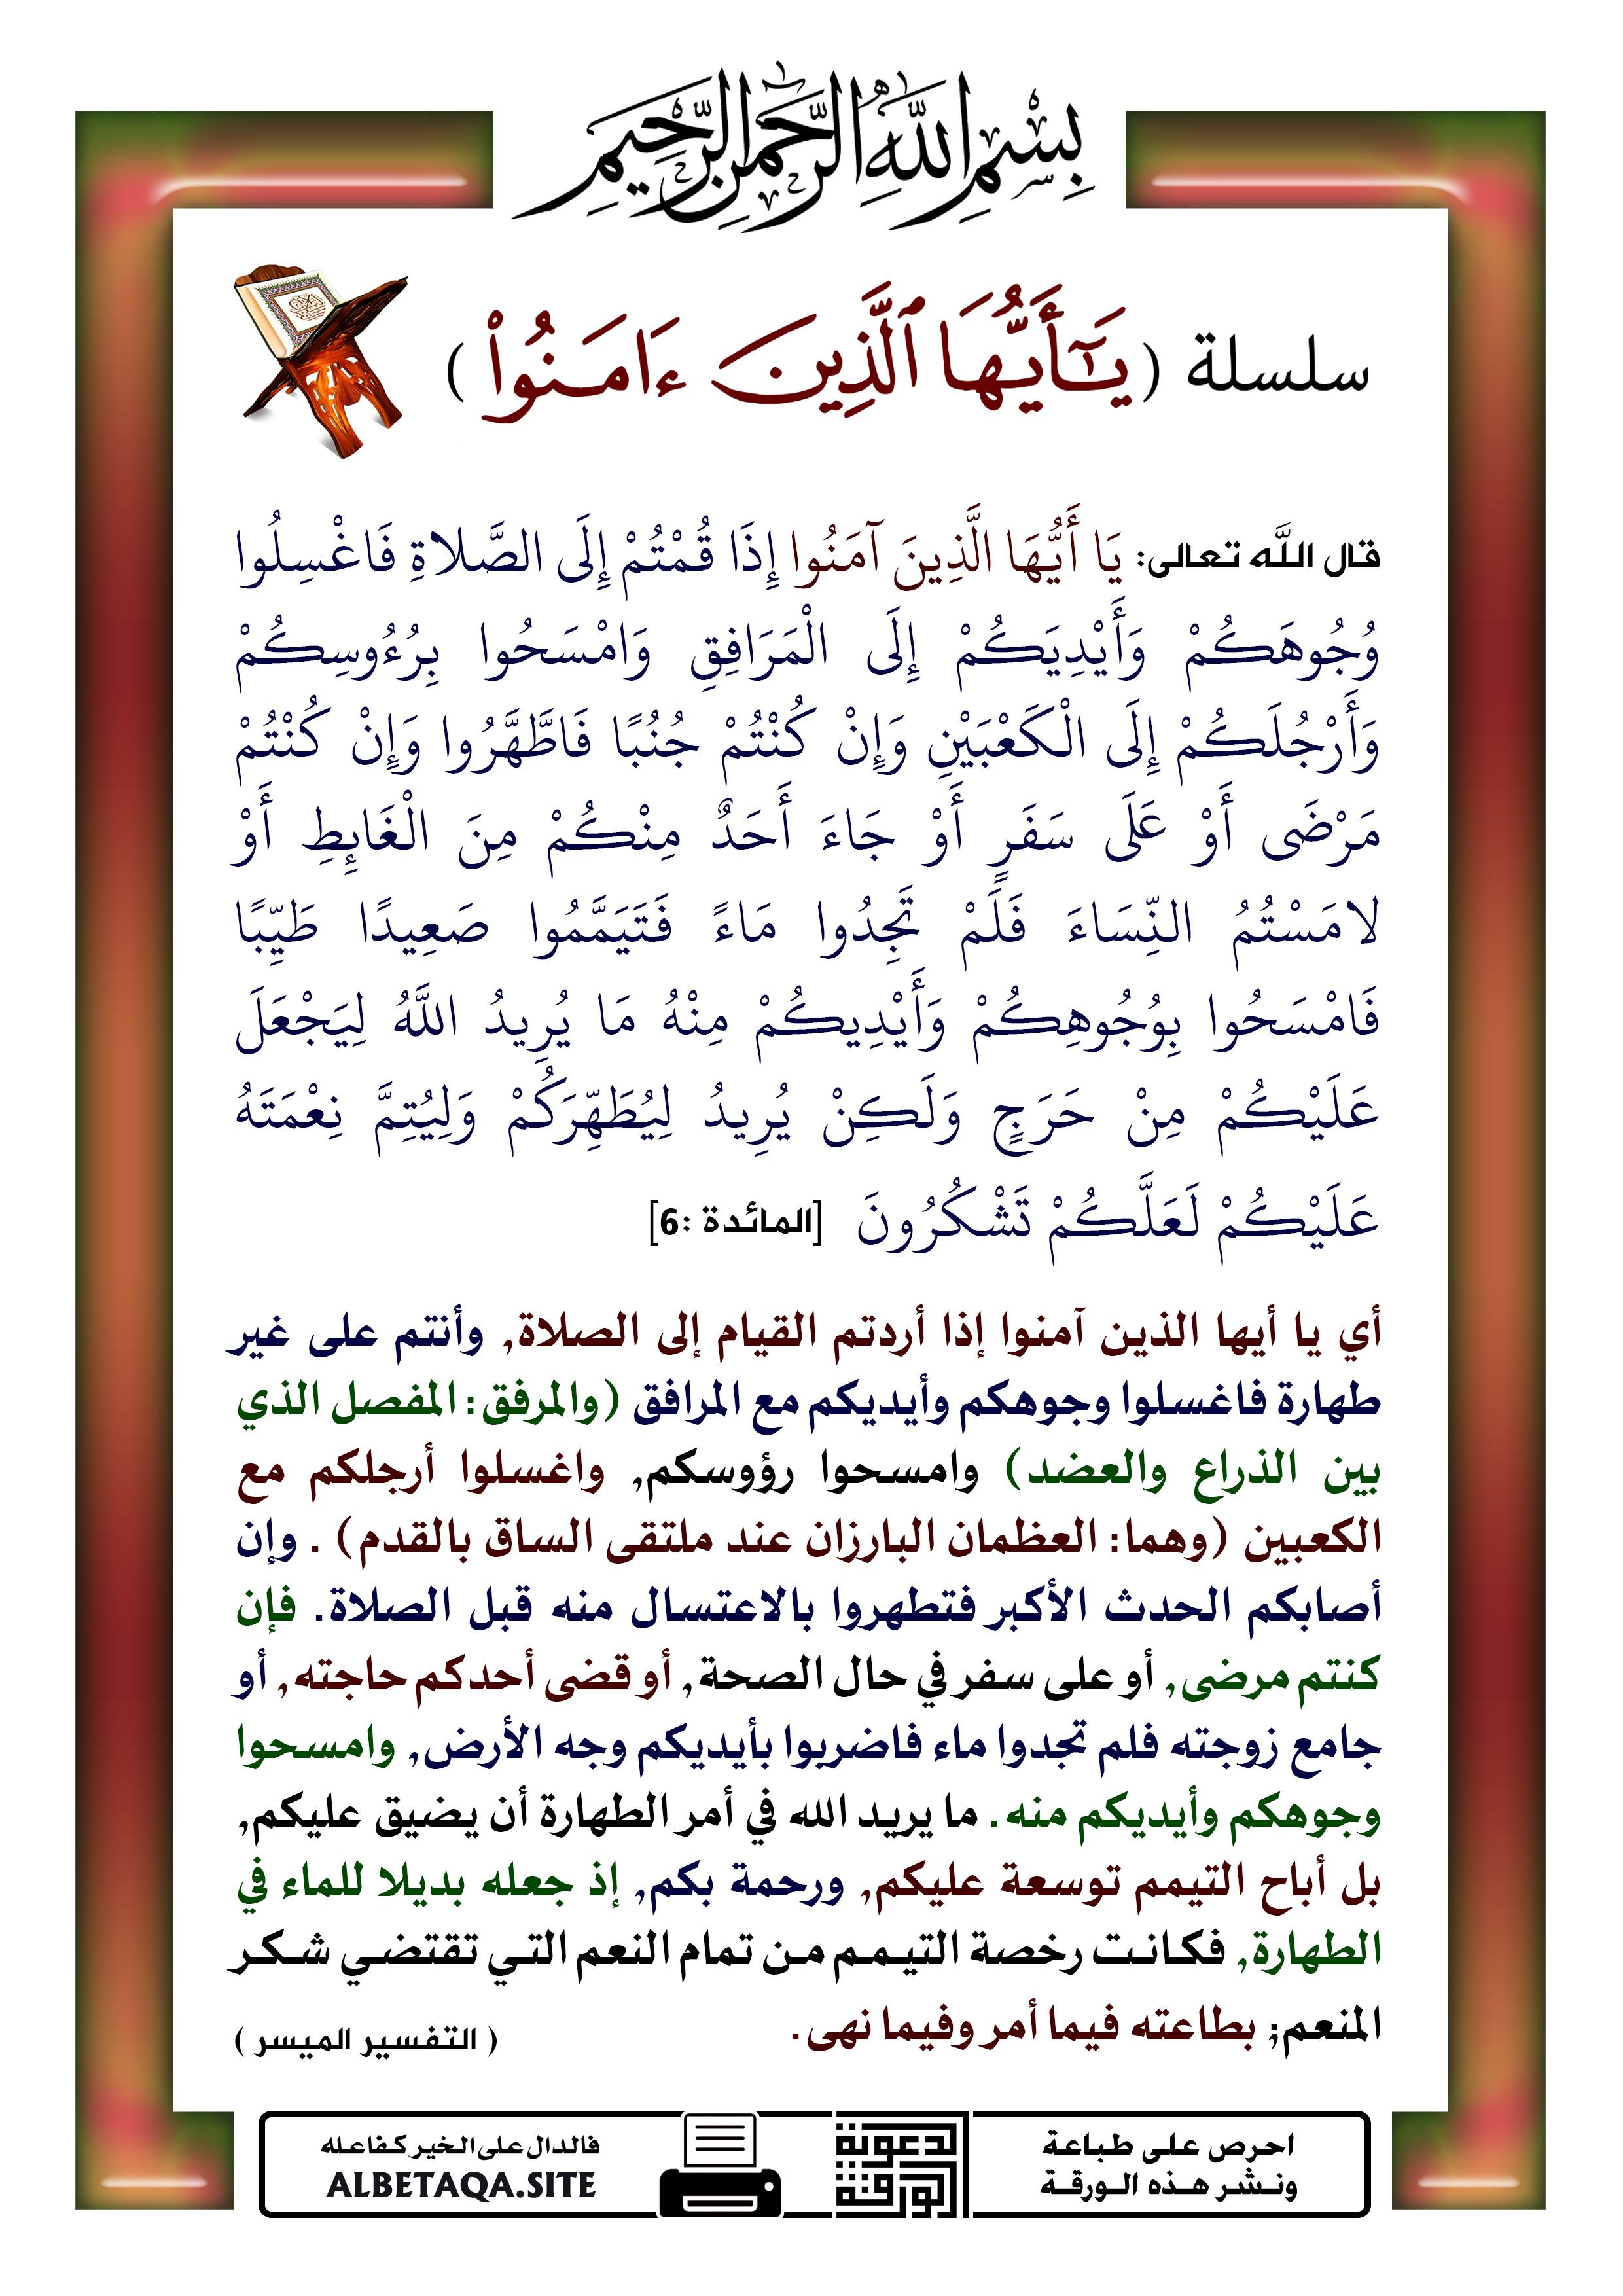 بِسْمِ اللَّهِ الرَّحْمَٰنِ الرَّحِيمِ
سلسلة (يَـٰٓأَيُّهَا ٱلَّذِينَ ءَامَنُوا۟)
قال الله تعالى: يَا أَيُّهَا الَّذِينَ آمَنُوا إِذَا قُمْتُمْ إِلَى الصَّلاةِ فَاغْسِلُوا
وُجُوهَكُمْ وَأَيْدِيَكُمْ إِلَى الْمَرَافِقِ وَامْسَحُوا بِرُءُوسِكُمْ
وَأَرْجُلَكُمْ إِلَى الْكَعْبَيْنِ وَإِنْ كُنْتُمْ جُنُبًا فَاطَّهَّرُوا وَإِنْ كُنْتُمْ
مَرْضَى أَوْ عَلَى سَفَرٍ أَوْ جَاءَ أَحَدٌ مِنْكُمْ مِنَ الْغَائِطِ أَوْ
لامَسْتُمُ النِّسَاءَ فَلَمْ تَجِدُوا مَاءً فَتَيَمَّمُوا صَعِيدًا طَيِّبًا
فَامْسَحُوا بِوُجُوهِكُمْ وَأَيْدِيكُمْ مِنْهُ مَا يُرِيدُ اللَّهُ لِيَجْعَلَ
عَلَيْكُمْ مِنْ حَرَجٍ وَلَكِنْ يُرِيدُ لِيُطَهِّرَكُمْ وَلِيُتِمَّ نِعْمَتَهُ
عَلَيْكُمْ لَعَلَّكُمْ تَشْكُرُونَ [المائدة :6]
أي يا أيها الذين آمنوا إذا أردتم القيام إلى الصلاة, وأنتم على غير
طهارة فاغسلوا وجوهكم وأيديكم مع المرافق (والمرفق: المفصل الذي
بين الذراع والعضد) وامسحوا رؤوسكم, واغسلوا أرجلكم مع
الكعبين (وهما: العظمان البارزان عند ملتقى الساق بالقدم) . وإن
أصابكم الحدث الأكبر فتطهروا بالاعتسال منه قبل الصلاة. فإن
كنتم مرضى, أو على سفر في حال الصحة, أو قضى أحدكم حاجته, أو
جامع زوجته فلم تجدوا ماء فاضربوا بأيديكم وجه الأرض, وامسحوا
وجوهكم وأيديكم منه. ما يريد الله في أمر الطهارة أن يضيق عليكم,
بل أباح التيمم توسعة عليكم, ورحمة بكم, إذ جعله بديلا للماء في
الطهارة, فكانت رخصة التيمم من تمام النعم التي تقتضي شكر
المنعم; بطاعته فيما أمر وفيما نهى.
( التفسير الميسر )
احرص على طباعة
ونشر هذه الورقة
الورقة
لدعوية
فالدال على الخير كفاعله
ALBETAQA.SITE